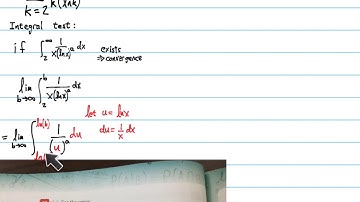 k=2 k(lnk)
Integral test:
if ∫₂^∞ 1/(x(lnx)^a) dx exists
⇒ convergence
lim b→∞ ∫₂^b 1/(x(lnx)^a) dx
let u = lnx
du = 1/x dx
= lim b→∞ ∫^ln(b) 1/(u)^a du